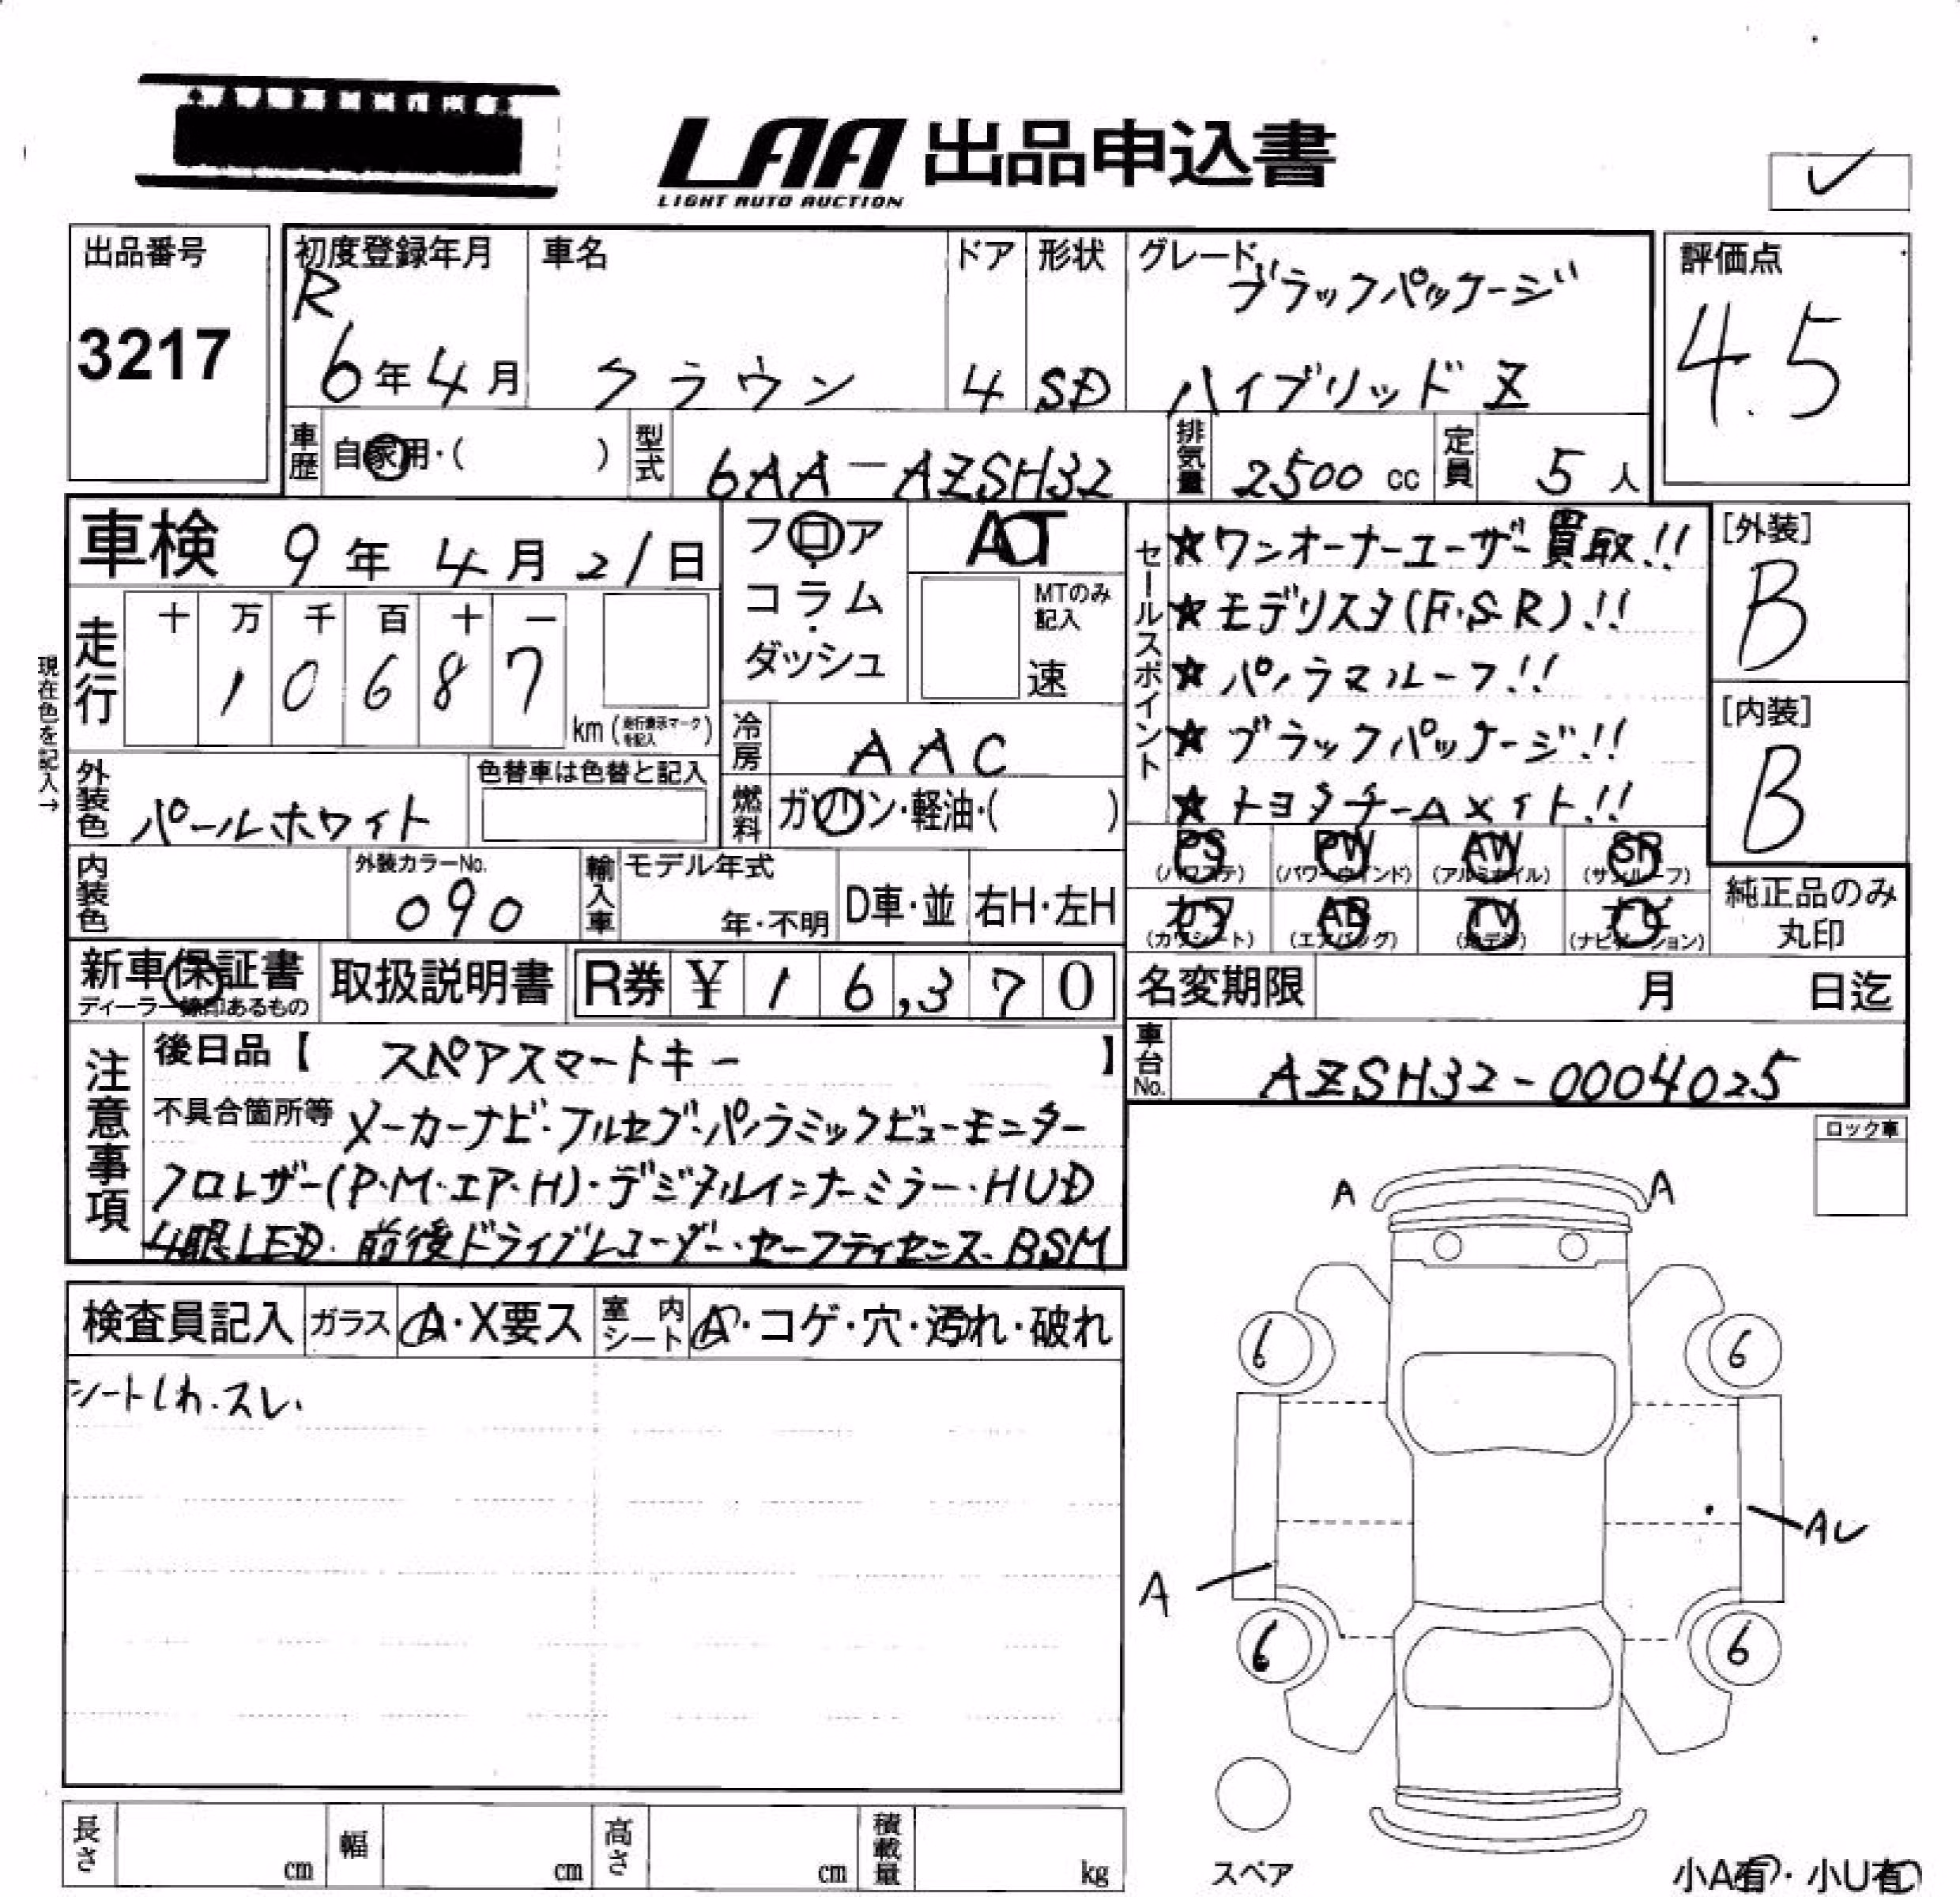 LAA 出品申込書
LIGHT AUTO AUCTION
出品番号
3217
初度登録年月
R
6年4月
車名
クラウン
ドア
4
形状
SD
グレード
ブラックパッケージ
ハイブリッド Z
評価点
4.5
車歴 自家用・( )
型式 6AA-AZSH32
排気量 2500 cc
定員 5人
車検 9年4月21日
フロア
コラム
ダッシュ
AT
MTのみ記入
速
走行
十 万 千 百 十 一
1 0 6 8 7
km (走行表示マークを記入)
現在色を記入→
冷房 AAC
燃料 ガソリン・軽油・( )
外装色 パールホワイト
色替車は色替と記入
内装色
外装カラーNo.
090
輸入車 モデル年式
年・不明
D車・並
右H・左H
セールスポイント
★ワンオーナーユーザー買取!!
★モデリスタ(F・S・R)!!
★パノラマルーフ!!
★ブラックパッケージ!!
★トヨタチームメイト!!
[外装]
B
[内装]
B
PS (パワステ) PW (パワーウインド) AW (アルミホイル) SR (サンルーフ)
カワ (カワシート) AB (エアバッグ) TV ナビ (ナビゲーション)
純正品のみ
丸印
新車保証書
取扱説明書
R券 ¥16,370
名変期限 月 日迄
車台No. AZSH32-0004025
注意事項
後日品【 スペアスマートキー 】
不具合箇所等 メーカーナビ・フルセグ・パノラミックビューモニター
クロレザー(P・M・エア・H)・デジタルインナーミラー・HUD
4眼LED・前後ドライブレコーダー・セーフティセンス・BSM
ロック車
検査員記入 ガラス A・X要ス 室内シート A・コゲ・穴・汚れ・破れ
シートしわ・スレ・
A A
6 6
AU
A
6 6
スペア
長さ cm 幅 cm 高さ cm 積載量 kg
小A有・小U有